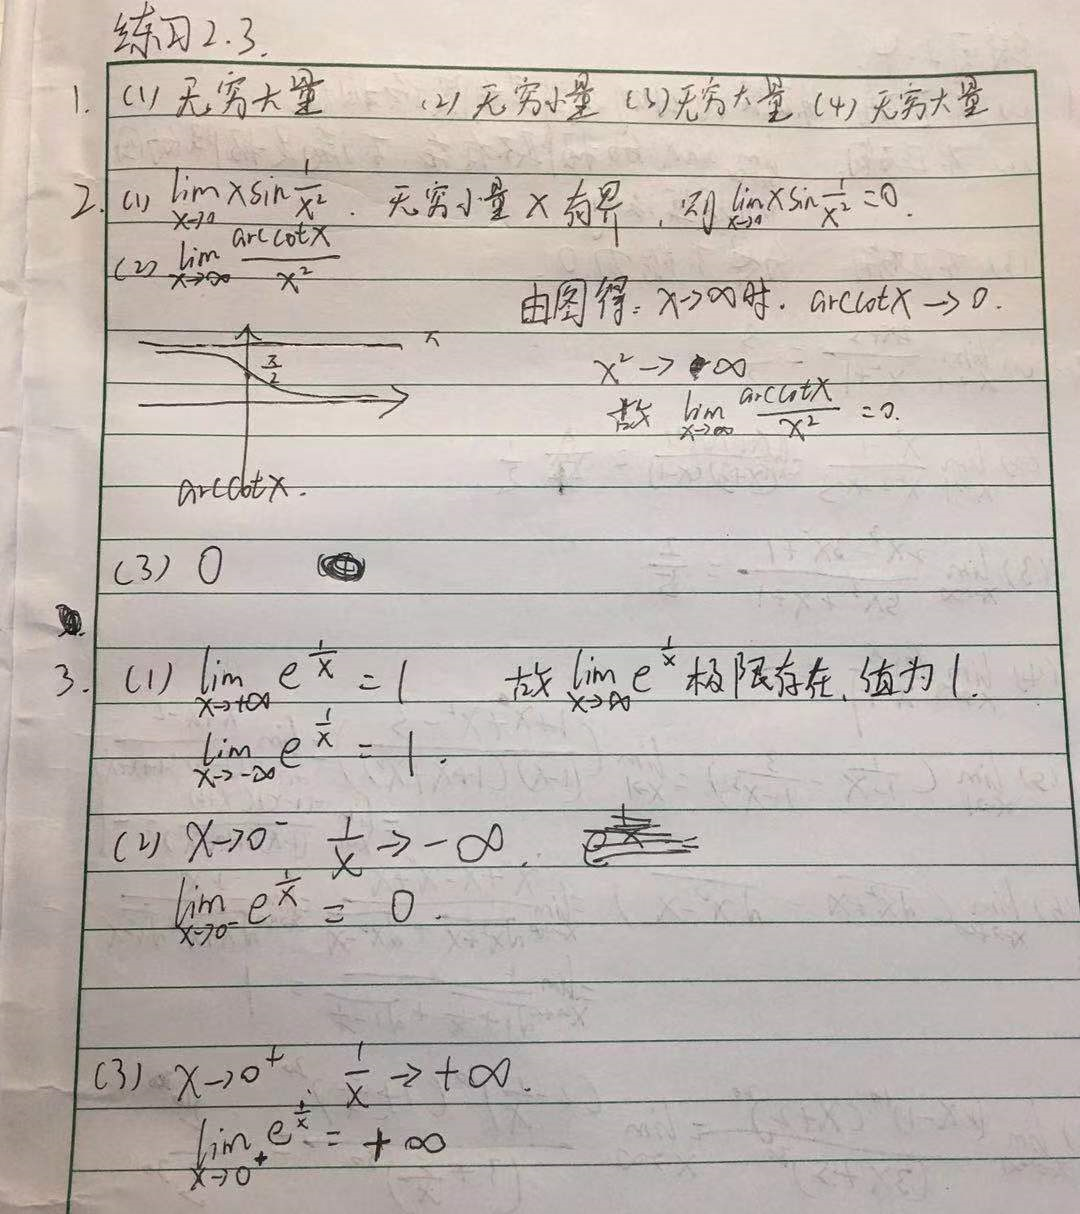 练习2.3.
1. (1) 无穷大量 (2) 无穷小量 (3) 无穷大量 (4) 无穷大量
2. (1) lim x→0 x sin 1/x² . 无穷小量 × 有界, 则 lim x→0 x sin 1/x² = 0.
(2) lim x→∞ arccotx/x²
由图得: x→∞时. arccotx → 0.
π
π/2
x² → ∞
故 lim x→∞ arccotx/x² = 0.
arccotx.
(3) 0
3. (1) lim x→+∞ e^(1/x) = 1 故 lim x→∞ e^(1/x) 极限存在, 值为1.
lim x→-∞ e^(1/x) = 1.
(2) x→0⁻ 1/x → -∞.
lim x→0⁻ e^(1/x) = 0.
(3) x→0⁺ 1/x → +∞.
lim x→0⁺ e^(1/x) = +∞